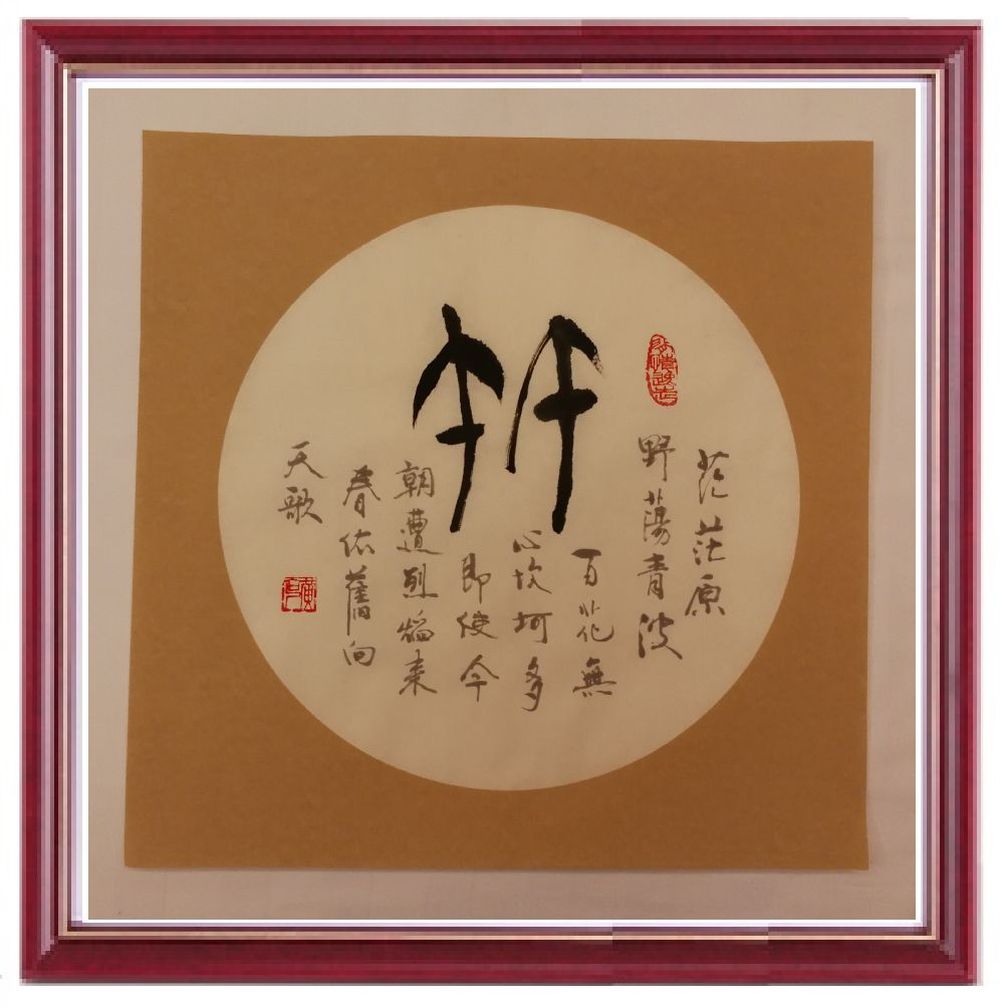 茫茫原
野蕩青波
百花無
心坎坷多
即使今
朝遭烈焰来
春依舊向
天歌